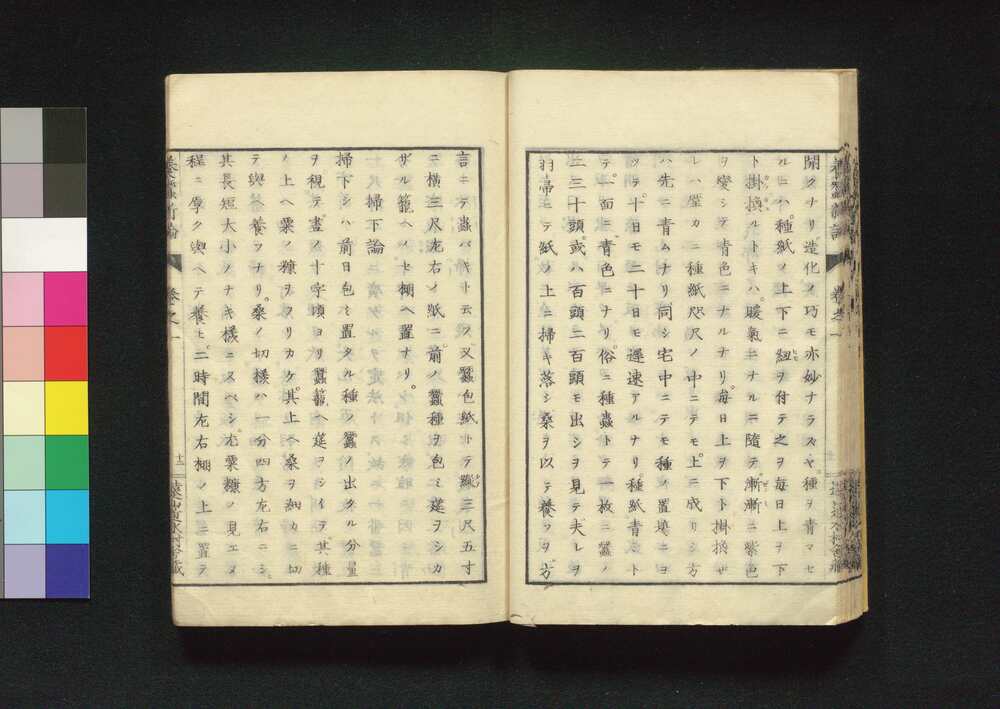 開クナリ造化ノ巧モ亦妙ナラスヤ種ヲ青マセ
ルニハ種紙ノ上下ニ紐ヲ付テ之ヲ毎日上ヲ下
ト掛換ルトキハ暖氣ニナルニ隨テ漸漸ニ紫色
ヲ変シテ青色ニナルナリ毎日上ヲ下ト掛換ザ
レハ壁カニ種紙咫尺ノ中ニテモ上ニ成リシ方
ハ先ニ青ムナリ同シ宅中ニテモ種ノ置塲ニヨ
ッテ十日モ二十日モ遲速アルナリ種紙青シト
テ一面ニ青色ニナリ俗ニ種蟲トテ一枚ニ蠶ノ
二三十頭或ハ百頭二百頭モ出シヲ見テ夫レヲ
羽帚ニテ紙ノ上ニ掃キ落シ桑ヲ以テ養フヲ方
言ニテ蟲バキト云フ又蠶包紙トテ竪三尺五寸
ニ横三尺左右ノ紙ニ前ノ蠶種ヲ包ミ莚ヲシカ
ザル籠ヘノセ棚ヘ置ナリ
掃下論
掃下シハ前日包ミ置タル種ノ蠶ノ出タル分量
ヲ視テ晝ノ十字頃ヨリ蠶籠ヘ莚ヲシイテ其種
ノ上ヘ粟ノ糠ヲフリカケ其上ヘ桑ヲ細カニ切
テ與ヘ養フナリ桑ノ切様ハ一分四方左右ニシ
其長短大小ノナキ様ニスベシ尤粟糠ノ見エヌ
程ニ厚ク與ヘテ養モ二時間左右棚ノ上ニ置テ
卷之一
十二